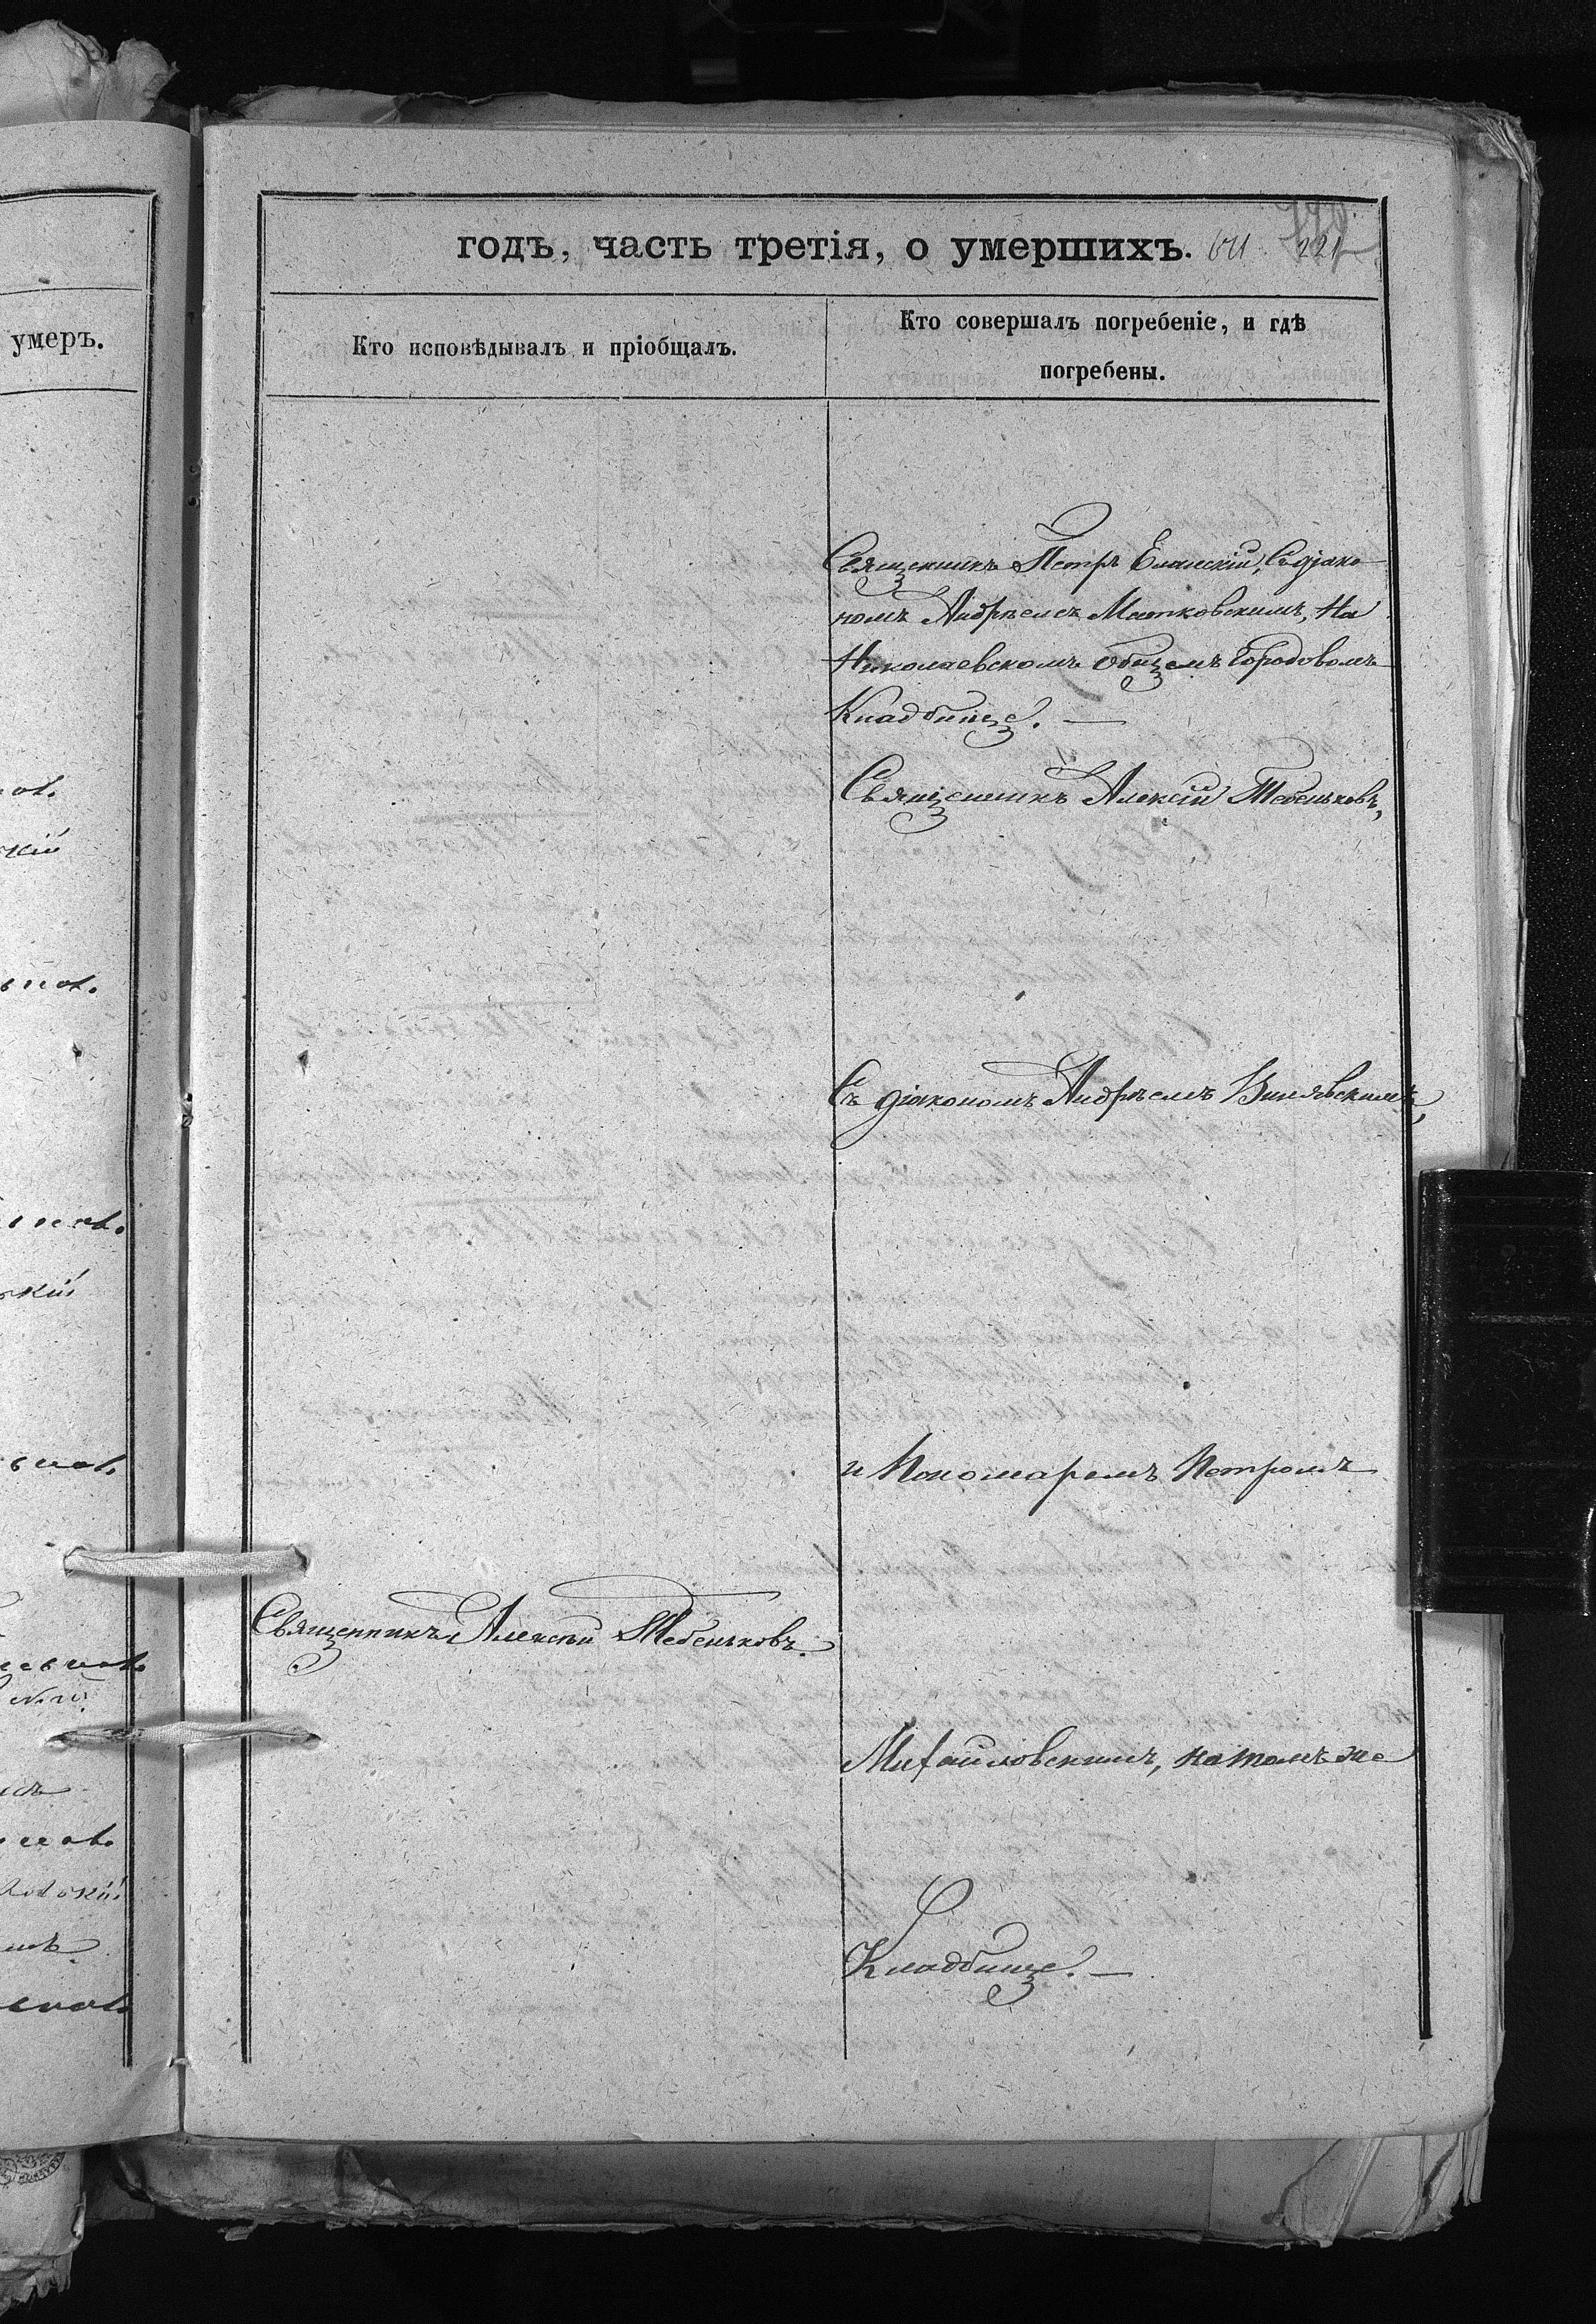 годъ, часть третія, о умершихъ. 611 221
умеръ.
Кто исповѣдывалъ и пріобщалъ.
Кто совершалъ погребеніе, и гдѣ
погребены.
Священникъ Петръ Еланскій, Съ діако
номъ Андреемъ Матковскимъ, На
Николаевскомъ общемъ Городовомъ
Кладбище. —
Священникъ Алексій Тебеньковъ,
Съ діакономъ Андреемъ Винявскимъ,
и Пономаремъ Петромъ
Священникъ Алексѣй Тебеньковъ.
Михайловскимъ, на томъ же
Кладбище. —